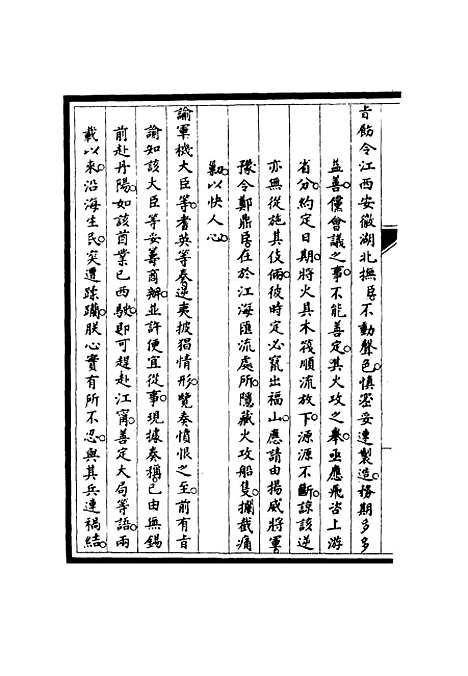 旨飭令江西安徽湖北撫臣不動聲色慎密妥速製造務期多多
益善儻會議之事不能善定其火攻之舉亟應飛咨上游
省分約定日期將火具木筏順流放下源源不斷諒該逆
亦無從施其伎倆彼時定必竄出福山應請由揚威將軍
豫令鄭鼎臣在於江海匯流處所隱藏火攻船隻攔截痛
勦以快人心
諭軍機大臣等耆英等奏逆夷披猖情形覽奏憤恨之至前有旨
諭知該大臣等妥籌商辦並許便宜從事現據奏稱已由無錫
前赴丹陽如該酋業已西駛即可趕赴江甯善定大局等語兩
載以來沿海生民突遭蹂躪朕心實有所不忍與其兵連禍結